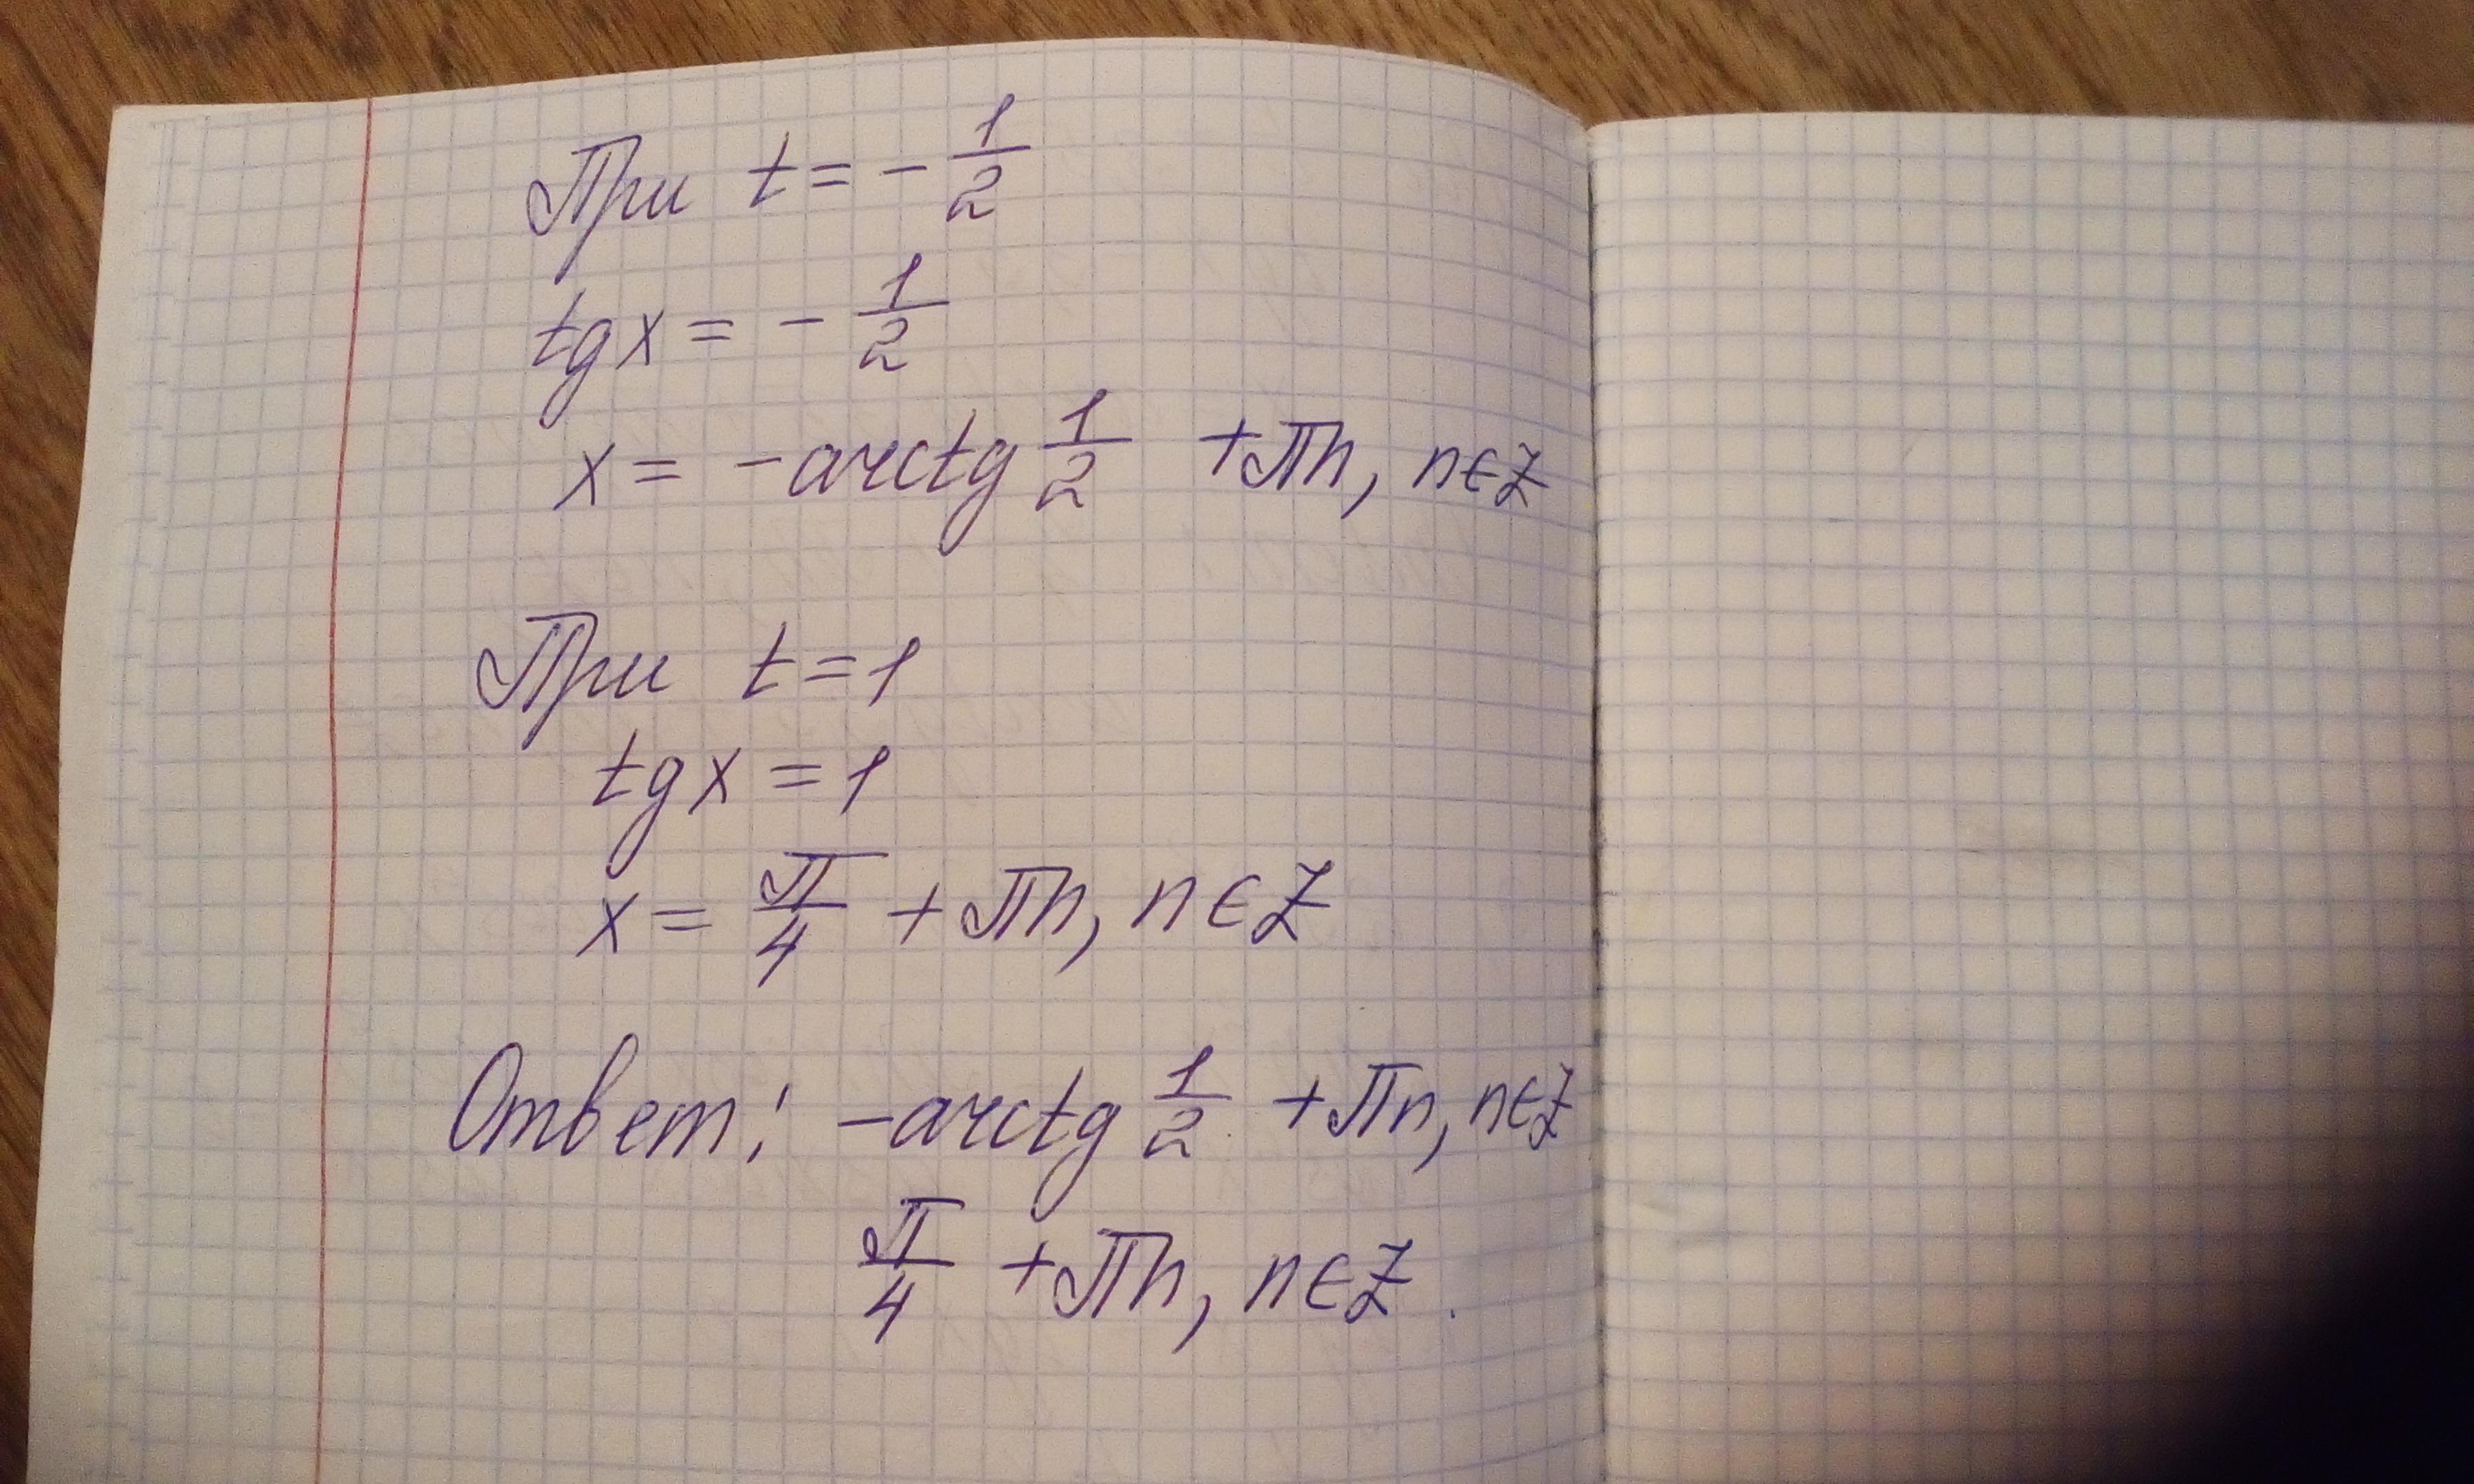 При t = - 1/2
tg x = - 1/2
x = - arctg 1/2 + πn, n ∈ Z
При t = 1
tg x = 1
x = π/4 + πn, n ∈ Z
Ответ: - arctg 1/2 + πn, n ∈ Z
π/4 + πn, n ∈ Z.